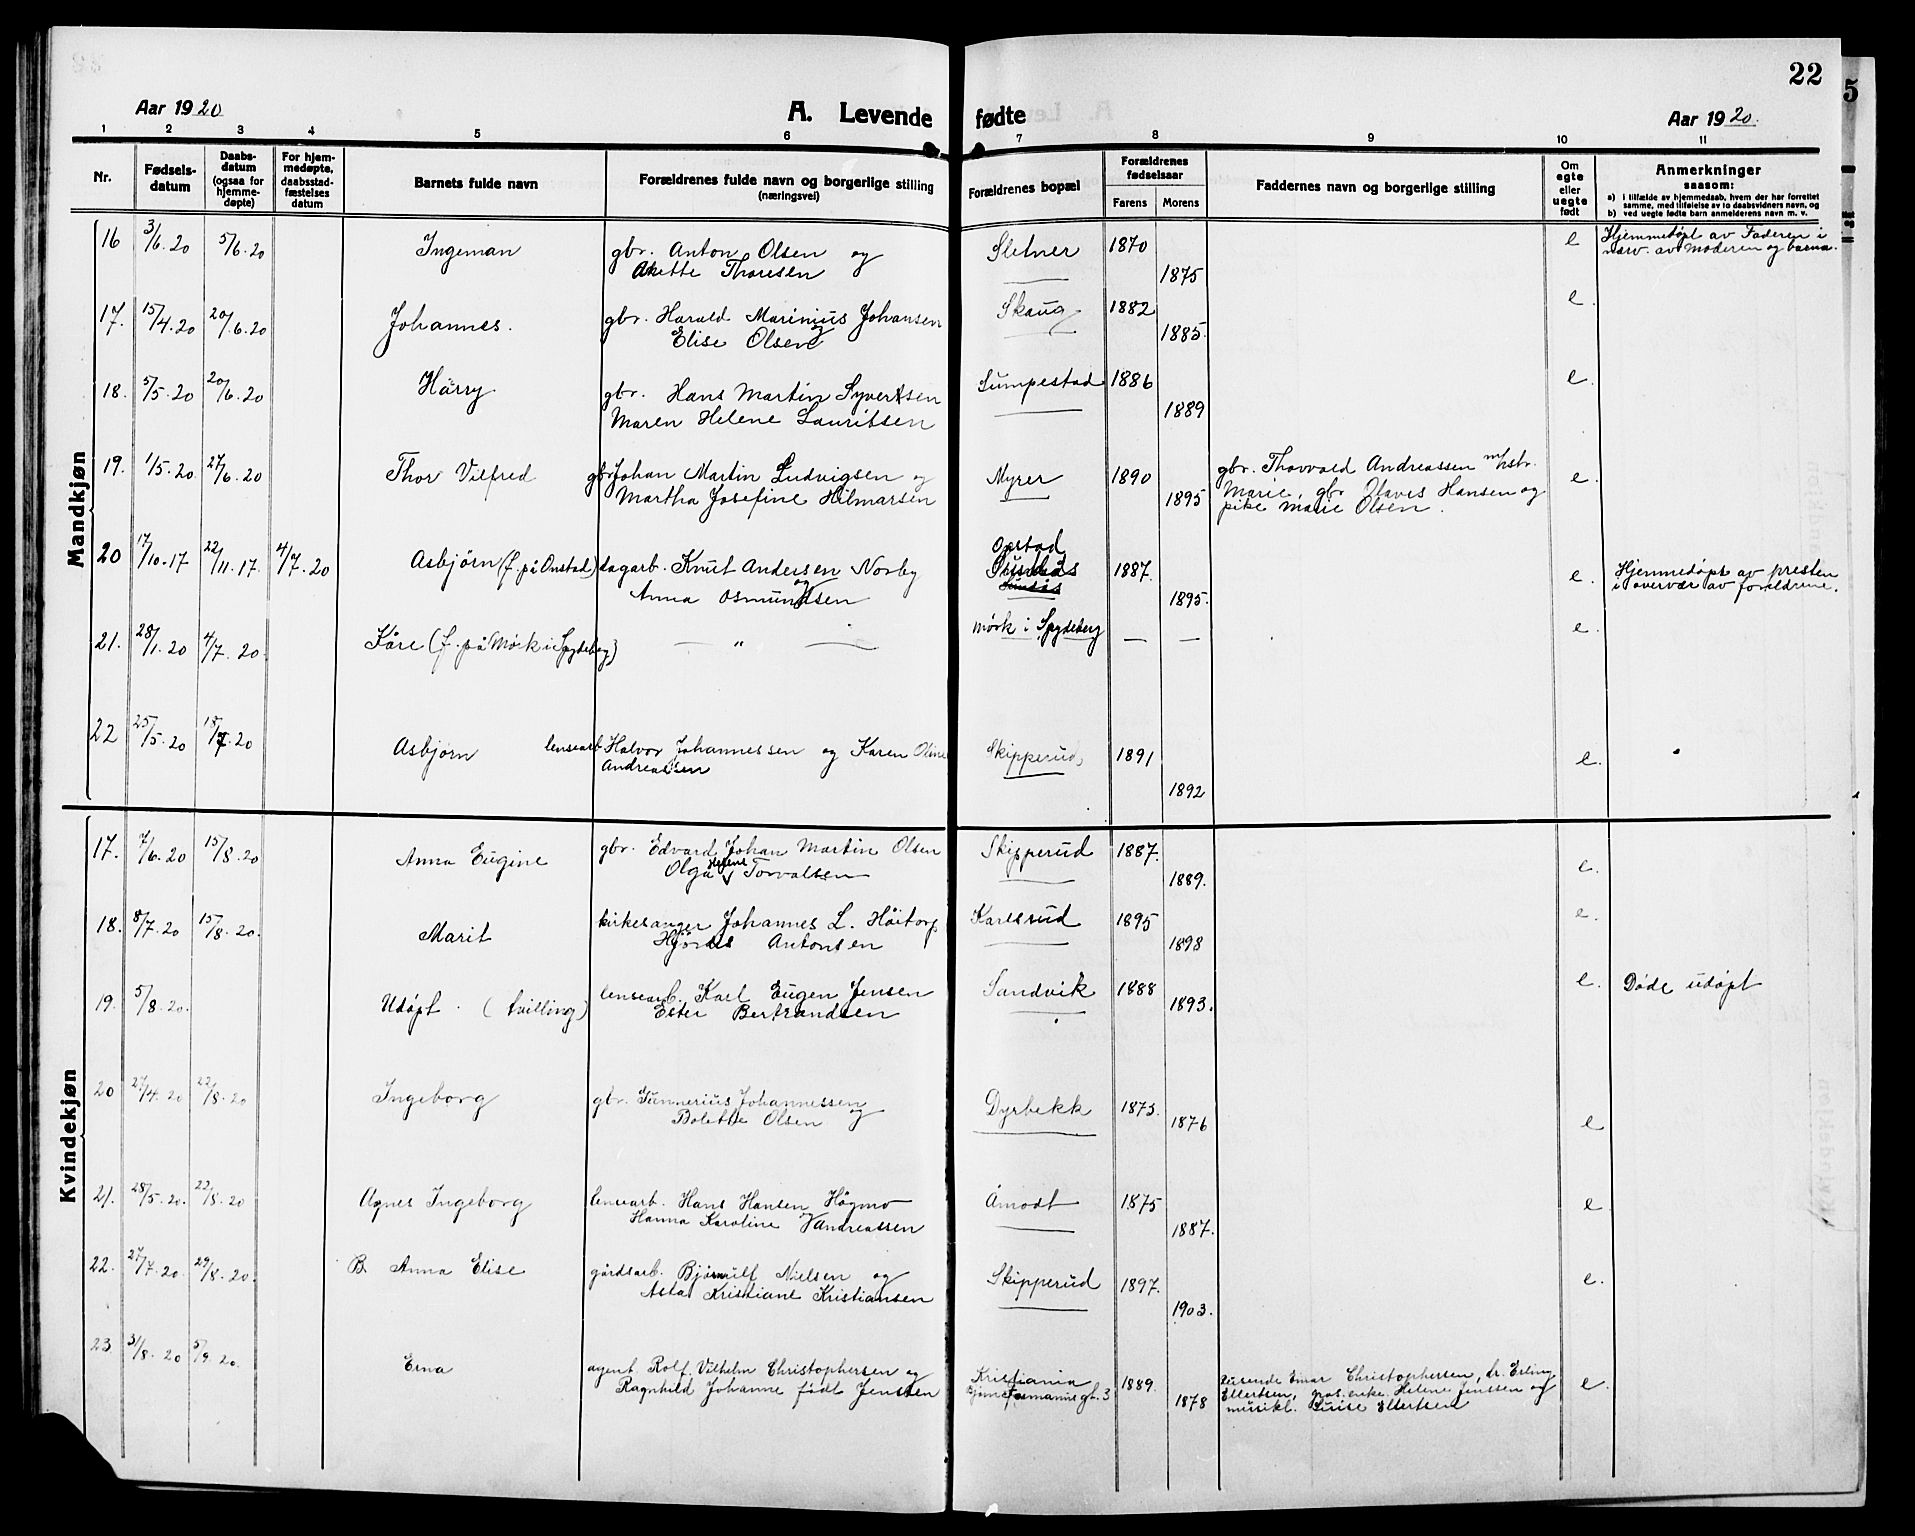 22
5
Aar 1920
A. Levende fødte
Aar 1920.
1 2 3 4 5 6 7 8 9 10 11
Nr.
Fødsels-
datum
Daabs-
datum
(ogsaa for
hjemme-
døpte)
For hjem-
medøpte,
daabsstad-
fæstelses
datum
Barnets fulde navn
Forældrenes fulde navn og borgerlige stilling
(næringsvei)
Forældrenes bopæl
Forældrenes
fødselsaar
Farens Morens
Faddernes navn og borgerlige stilling
Om
egte
eller
uegte
født
Anmerkninger
saasom:
a) i tilfælde av hjemmedaab, hvem der har forrettet
samme, med tilføielse av to daabsvidners navn, og
b) ved uegte fødte barn anmelderens navn m. v.
Mandkjøn
16 3/6.20 5/6.20 Ingeman gbr. Anton Olsen og Sletner 1870 e Hjemmedøpt av Faderen i
Anette Thoresen 1875 nærv. av Moderen og barna.
17. 15/4.20 20/6.20 Johannes. gbr. Harald Marinius Johansen Skaug 1882 e.
og Elise Olsen 1885.
18. 5/5.20 20/6.20 Harry gbr. Hans Martin Syvertsen Sumpestad 1886 e.
Maren Helene Lauritsen 1889
19. 1/5.20 27/6.20 Thor Vilfred gbr Johan Martin Ludvigsen og Myrer 1890 gbr. Thorvald Andreassen m/hstr. e.
Martha Josefine Hilmarsen 1895 Marie, gbr Olaves Hansen og
pike Marie Olsen.
20 17/10.17 22/11.17 4/7.20 Asbjørn (f. på Onstad) dagarb. Knut Andersen Norby og Onstad 1887. e. Hjemmedøpt av presten
Anna Osmundsen 1895. i overvær av forældrene.
21. 28/1.20 4/7.20 Kåre (f. på Mørk i Spydeberg) — " — Mørk i Spydeberg — — e.
22 25/5.20 18/7.20 Asbjørn lensearb. Halvor Johannessen og Karen Oline Skipperud 1891 e.
Andreassen 1892
Kvindekjøn
17. 7/6.20 15/8.20 Anna Eugine gbr. Edvard Johan Martin Olsen Skipperud 1887. e.
Olga Helene Torvalsen 1889.
18. 8/7.20 15/8.20. Marit kirkesanger Johannes L. Høitorp Karlsrud 1895 e.
Hjørdis Antonsen 1898
19. 5/8.20. Udøpt. (tvilling) lensearb. Karl Eugen Jensen Sandvik 1888 e. Døde udøpt
Ester Bertrandsen 1893.
20 27/4.20 22/8.20 Ingeborg gbr. Gunnerius Johannessen og Dyrbekk 1873. e
Bolette Olsen 1876
21. 28/5.20. 22/8.20 Agnes Ingeborg lensearb. Hans Hansen Høgmo Åmodt 1875 e.
Hanna Karoline Andreassen 1887.
22. 27/7.20. 29/8.20. B. Anna Elise gårdsarb. Bjørnulf Nielsen og Skipperud 1897. e.
Asta Kristiane Kristiansen 1903.
23. 31/8.20 5/9.20. Erna agent Rolf Vilhelm Christophersen og Kristiania 1889. Einar Christophersen, dr. Erling e.
Ragnhild Johanne født Jenssen 1878 Ellertsen, Helene Jenssen og
musikl. Luise Ellertsen